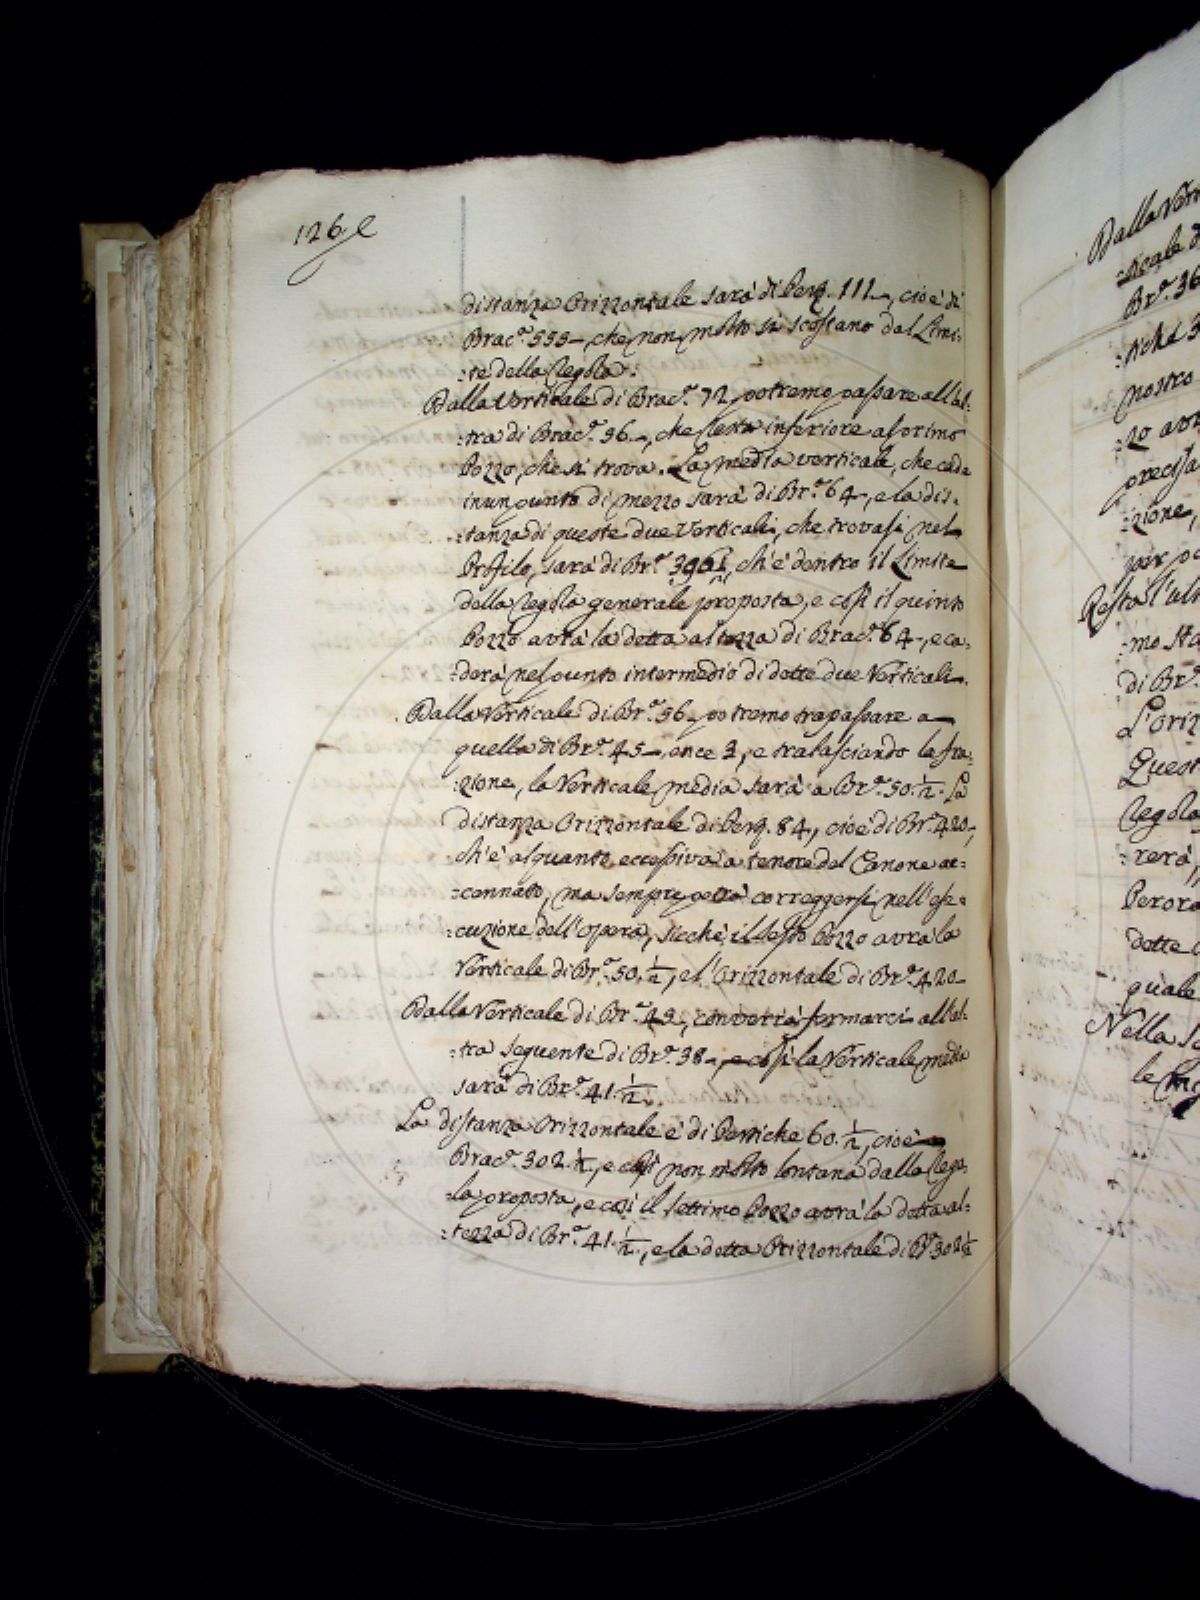 126.
distanza Orizzontale sarà di Perq. 111–, cioè di
Brac.ª 555–, che non molto si scostano dal Limi:
:te della Regola:
Dalla Verticale di Brac.ª 72 potremo passare all'al:
:tra di Brac.ª 56–, che resta inferiore al primo
Pozzo, che si trova. La media verticale, che cade
in un punto di mezzo sarà di Br.ª 64–, e la dis:
:tanza di queste due Verticali, che trovasi nel
Profilo, sarà di Br.ª ch'è dentro il Limite
della Regola generale proposta, e così il quinto
Pozzo avrà la detta altezza di Brac.ª 64–, e ca:
:derà nel punto intermedio di dette due Verticali.
Dalla Verticale di Br.ª 56– potremo trapassare a
quella di Br.ª 45– once 3, e tralasciando la fra:
:zione, la Verticale media sarà a Br.ª 50.½. La
distanza Orizzontale di Perq. 84, cioè di Br.ª 420–,
ch'è alquanto eccessiva a tenore del Canone ac:
:cennato, ma sempre potrà correggersi nell'ese:
:cuzione dell'opera, sicchè il sesto Pozzo avrà la
Verticale di Br.ª 50.½, e l'Orizzontale di Br.ª 420–
Dalla Verticale di Br.ª converrà formarci all'al:
:tra seguente di Br.ª 38–, e così la Verticale media
sarà di Br.ª 41.½.
La distanza Orizzontale è di Pertiche 60.½, cioè
Brac.ª 302.½, e così non molto lontana dalla Rego:
:la proposta, e così il settimo Pozzo avrà la detta al:
:tezza di Br.ª 41.½, e la detta Orizzontale di Br.ª 302½
Dalla Ver
:ticale d
Br.ª 36
:tiche 3
nostro
:zo avr
precisa
:zione,
per po
Resta l'ul
:mo sta
di Br.ª
L'oriz
Quest
Regola
:rerà,
Perora
dette
quale
Nella
le